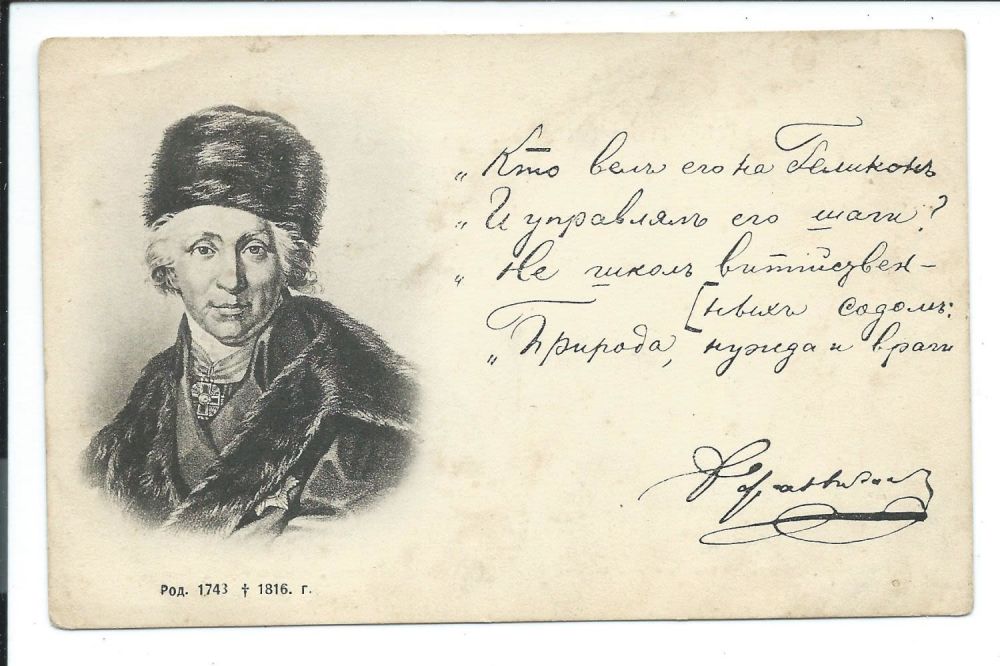 „Кто велъ его на Геликонъ
„И управлялъ его шаги?
„Не школъ витійствен-
[ныхъ содомъ:
„Природа, нужда и враги
Державинъ
Род. 1743 † 1816. г.